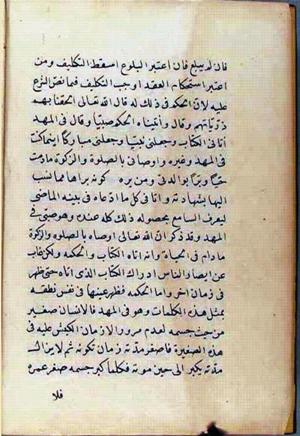 فان لم يبلغ فان اعتبر البلوغ اسقط التكليف ومن
اعتبر استحكام العقد اوجب التكليف فيما نص الشرع
عليه لانّ الحكم في ذلك له قال الله تعالى الحقنا بهم
ذرّيّاتهم وقال وآتيناه الحكم صبيّا وقال في المهد
آتانى الكتاب وجعلني نبيّا وجعلني مباركا اينما كنت
في المهد وغيره واوصاني بالصلوة والزكوة ما دمت
حيّا وبرّا بوالدتي ومن بره كونه براها مما نسب
اليها بشهادته وأتى في كل ما ادعاه ببينة الماضي
ليعرف السامع بحصول ذلك كله عنده وهو صبي في
المهد وقد ذكر انّ الله تعالى اوصاه بالصلوة والزكوة
ما دام في الحياة وانه اتاه الكتاب والحكمة ولكن غاب
عن ابصار الناس ادراك الكتاب الذى اتاه حتى ظهر
في زمان آخر واما الحكمة فظهر عينها في نفس نطقه
بمثل هذه الكلمات وهو في المهد فالانسان صغير
من حيث جسمه لعدم مرور الازمان الكثيرة عليه في
هذه الصغيرة فاصغر مدّته زمان تكونه ثم لا يزال
مدّته يكبر الى حين موته فكلما كبر جسمه صغر عمره
فلا